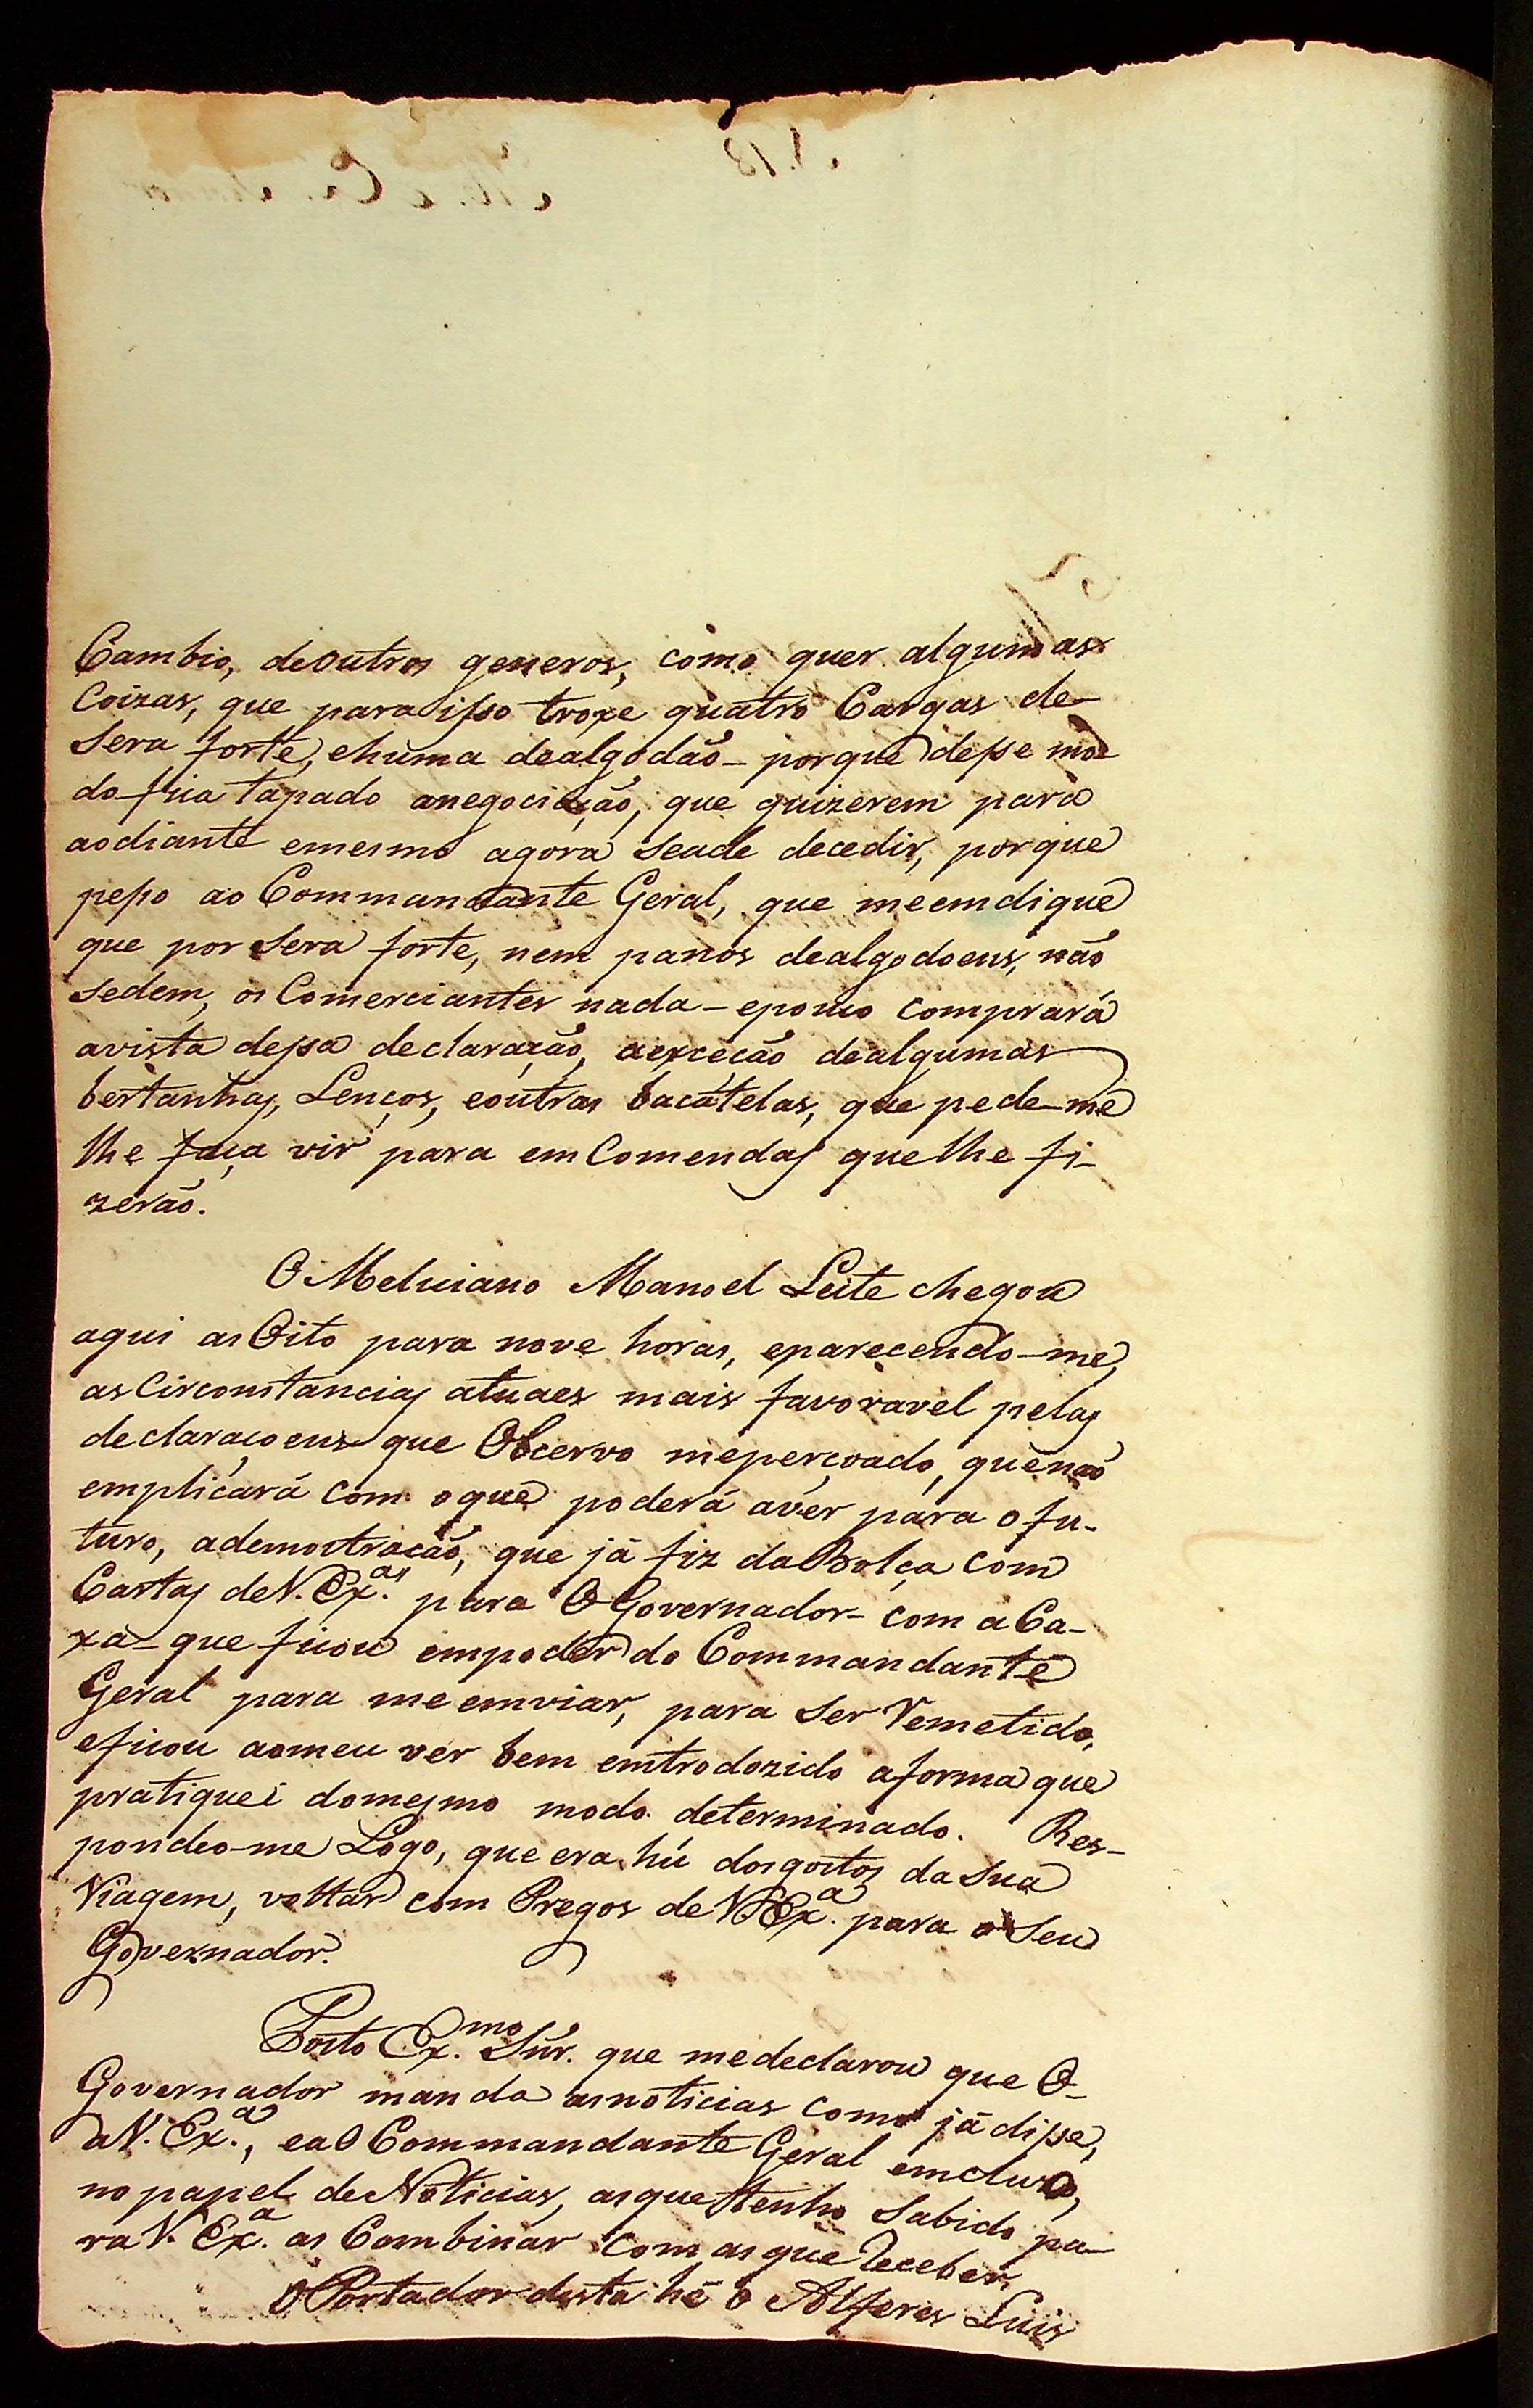 Cambio, deoutros generos, como quer algumas
Coizas, que para isso troxe quatro Cargas de
Sera forte, ehuma dealgodão - porque desse mo
do fica tapado anegociação, que quizerem para
aodiante emesmo agora seade decedir, porque
pesso ao Commandante Geral, que meemdique
que por Sera forte, nem panos dealgodoens, não
sedem, os Comerciantes nada - epouco comprará
avista dessa declaração, aexceção dealgumas
bertanhas, Lenços, eoutras bacatelas, que pede-me
lhe faça vir para emComendas quelhe fi-
zerão.
O Melu iano Manoel Leite chegou
aqui as Oito para nove horas, eparecendo-me,
as Circonstancias atuaes mais favoravel pelas
declaraçoens que Obcervo mepercoado, quenaõ
emplicará com oque poderá aver para ofu-
turo, ademostracão, que já fiz daBolça com
Cartas deV. Ex.as para O Governador - com a Ca-
xa - que ficou empoder do Commandante
Geral para me emviar, para Ser Remetido,
eficou aomeu ver bem emtrodozido aforma que
pratiquei domesmo modo determinado. Res-
pondeo-me Logo, que era hú dosgostos da Sua
Viagem, voltar com Pregos de V. Ex.a para o Seu
Governador.
Posto Ex.mo Snr. que medeclarou que O
Governador manda asnoticias como já disse,
aV. Ex.a, eaO Commandante Geral emcluzo,
no papel de Noticias, asque tenho Sabido pa-
ra V. Ex.a as Combinar com as que Receber.
O Portador desta hé o Alferes Luis